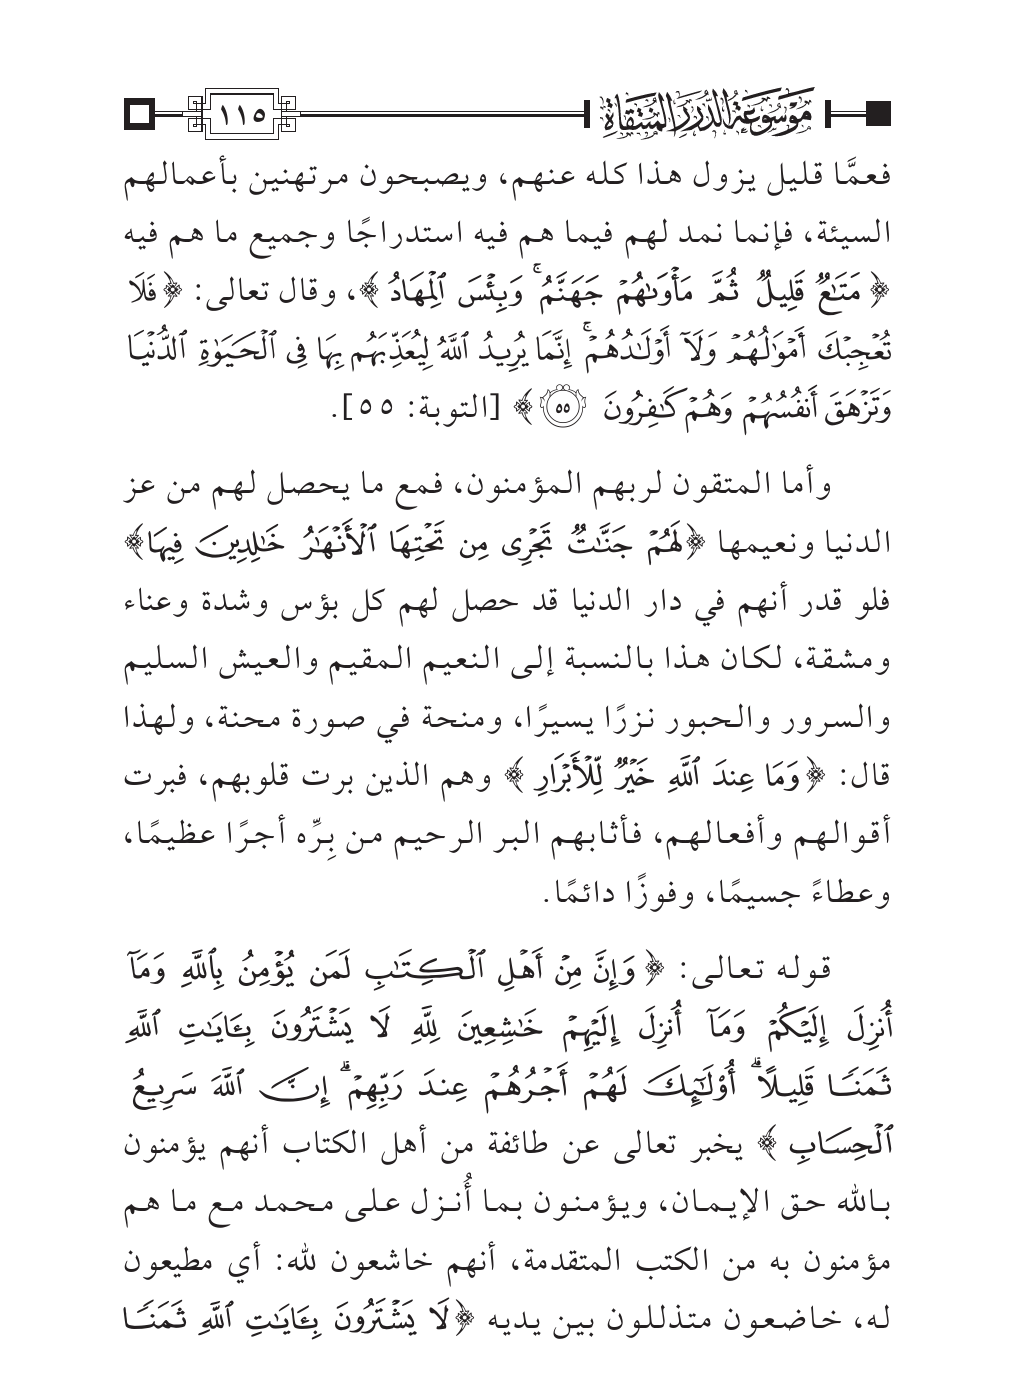 موسوعة الدرر المنتقاة ١١٥
فعمَّا قليل يزول هذا كله عنهم، ويصبحون مرتهنين بأعمالهم
السيئة، فإنما نمد لهم فيما هم فيه استدراجًا وجميع ما هم فيه
﴿مَتَٰعٌ قَلِيلٌ ثُمَّ مَأْوَىٰهُمْ جَهَنَّمُ ۚ وَبِئْسَ ٱلْمِهَادُ﴾، وقال تعالى: ﴿فَلَا
تُعْجِبْكَ أَمْوَٰلُهُمْ وَلَآ أَوْلَٰدُهُمْ ۚ إِنَّمَا يُرِيدُ ٱللَّهُ لِيُعَذِّبَهُم بِهَا فِى ٱلْحَيَوٰةِ ٱلدُّنْيَا
وَتَزْهَقَ أَنفُسُهُمْ وَهُمْ كَٰفِرُونَ ٥٥﴾ [التوبة: ٥٥].
وأما المتقون لربهم المؤمنون، فمع ما يحصل لهم من عز
الدنيا ونعيمها ﴿لَهُمْ جَنَّٰتٌ تَجْرِى مِن تَحْتِهَا ٱلْأَنْهَٰرُ خَٰلِدِينَ فِيهَا﴾
فلو قدر أنهم في دار الدنيا قد حصل لهم كل بؤس وشدة وعناء
ومشقة، لكان هذا بالنسبة إلى النعيم المقيم والعيش السليم
والسرور والحبور نزرًا يسيرًا، ومنحة في صورة محنة، ولهذا
قال: ﴿وَمَا عِندَ ٱللَّهِ خَيْرٌ لِّلْأَبْرَارِ﴾ وهم الذين برت قلوبهم، فبرت
أقوالهم وأفعالهم، فأثابهم البر الرحيم من بِرِّه أجرًا عظيمًا،
وعطاءً جسيمًا، وفوزًا دائمًا.
قوله تعالى: ﴿وَإِنَّ مِنْ أَهْلِ ٱلْكِتَٰبِ لَمَن يُؤْمِنُ بِٱللَّهِ وَمَآ
أُنزِلَ إِلَيْكُمْ وَمَآ أُنزِلَ إِلَيْهِمْ خَٰشِعِينَ لِلَّهِ لَا يَشْتَرُونَ بِـَٔايَٰتِ ٱللَّهِ
ثَمَنًا قَلِيلًا ۗ أُو۟لَٰٓئِكَ لَهُمْ أَجْرُهُمْ عِندَ رَبِّهِمْ ۗ إِنَّ ٱللَّهَ سَرِيعُ
ٱلْحِسَابِ﴾ يخبر تعالى عن طائفة من أهل الكتاب أنهم يؤمنون
بالله حق الإيمان، ويؤمنون بما أُنزل على محمد مع ما هم
مؤمنون به من الكتب المتقدمة، أنهم خاشعون لله: أي مطيعون
له، خاضعون متذللون بين يديه ﴿لَا يَشْتَرُونَ بِـَٔايَٰتِ ٱللَّهِ ثَمَنًا